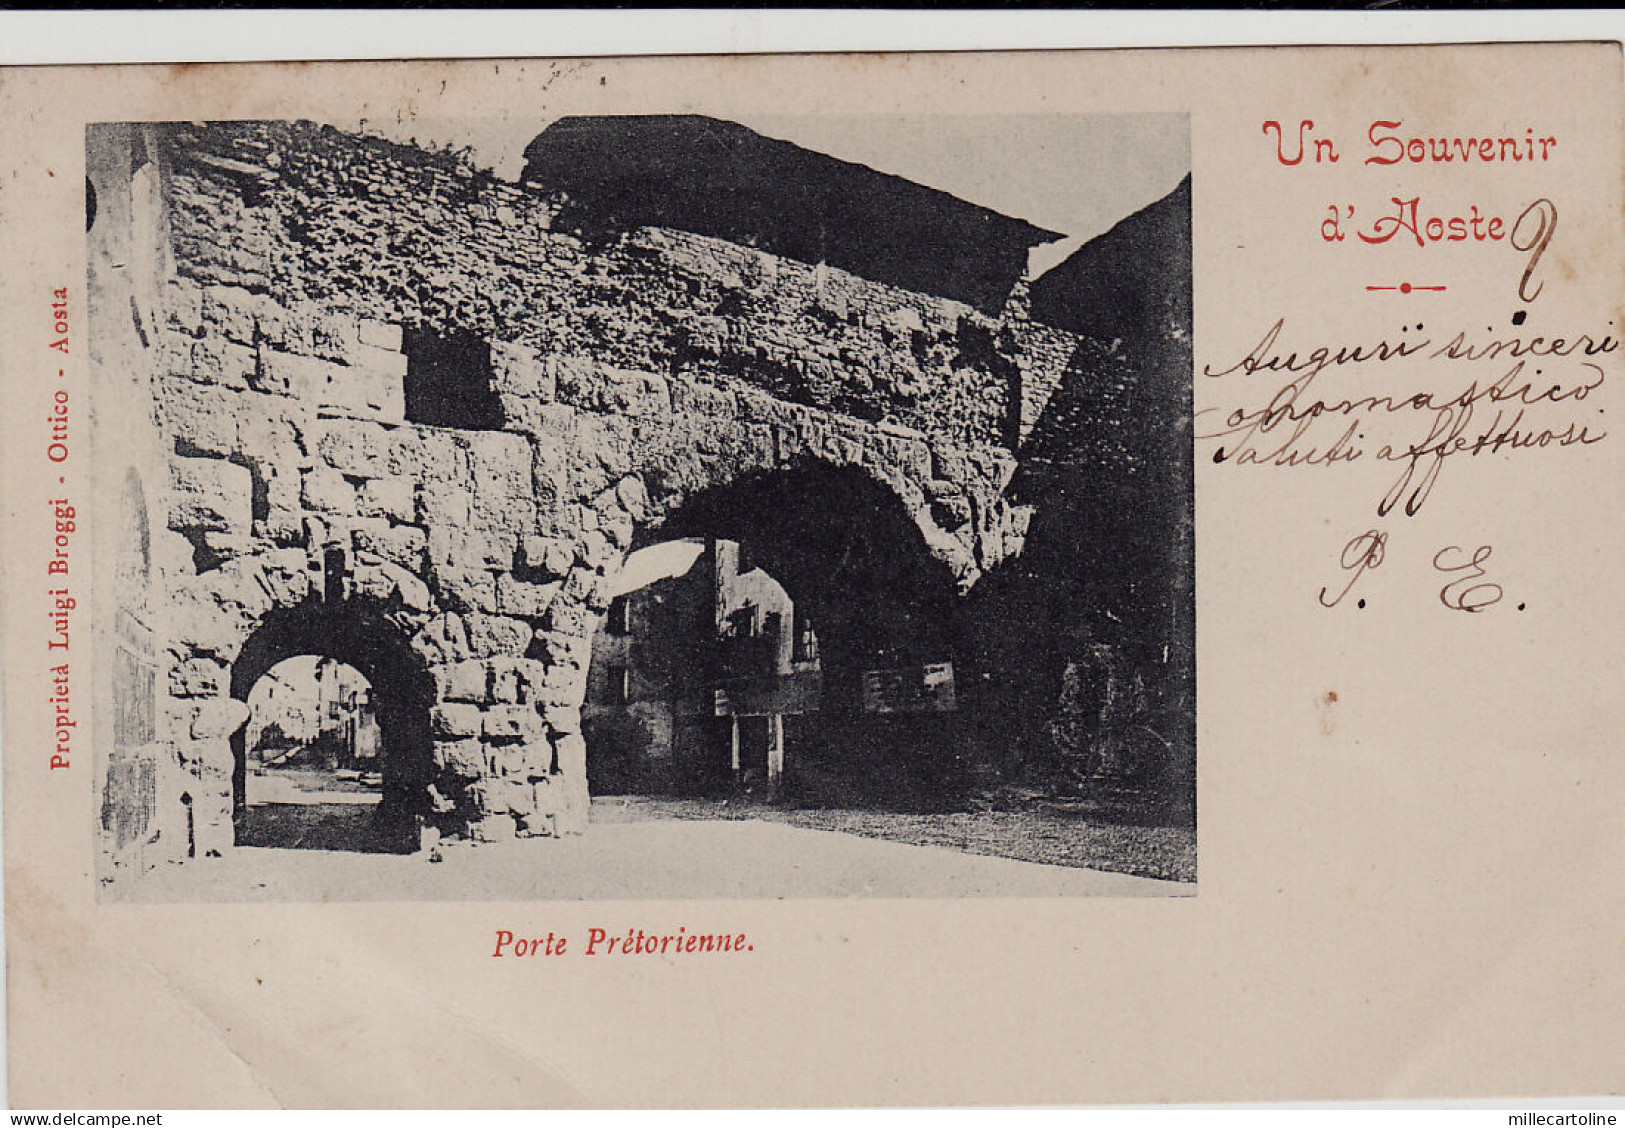 Un Souvenir
d'Aoste ?
Auguri sinceri
onomastico
Saluti affettuosi
P. E.
Proprietà Luigi Broggi - Ottico - Aosta
Porte Prétorienne.
millecartoline